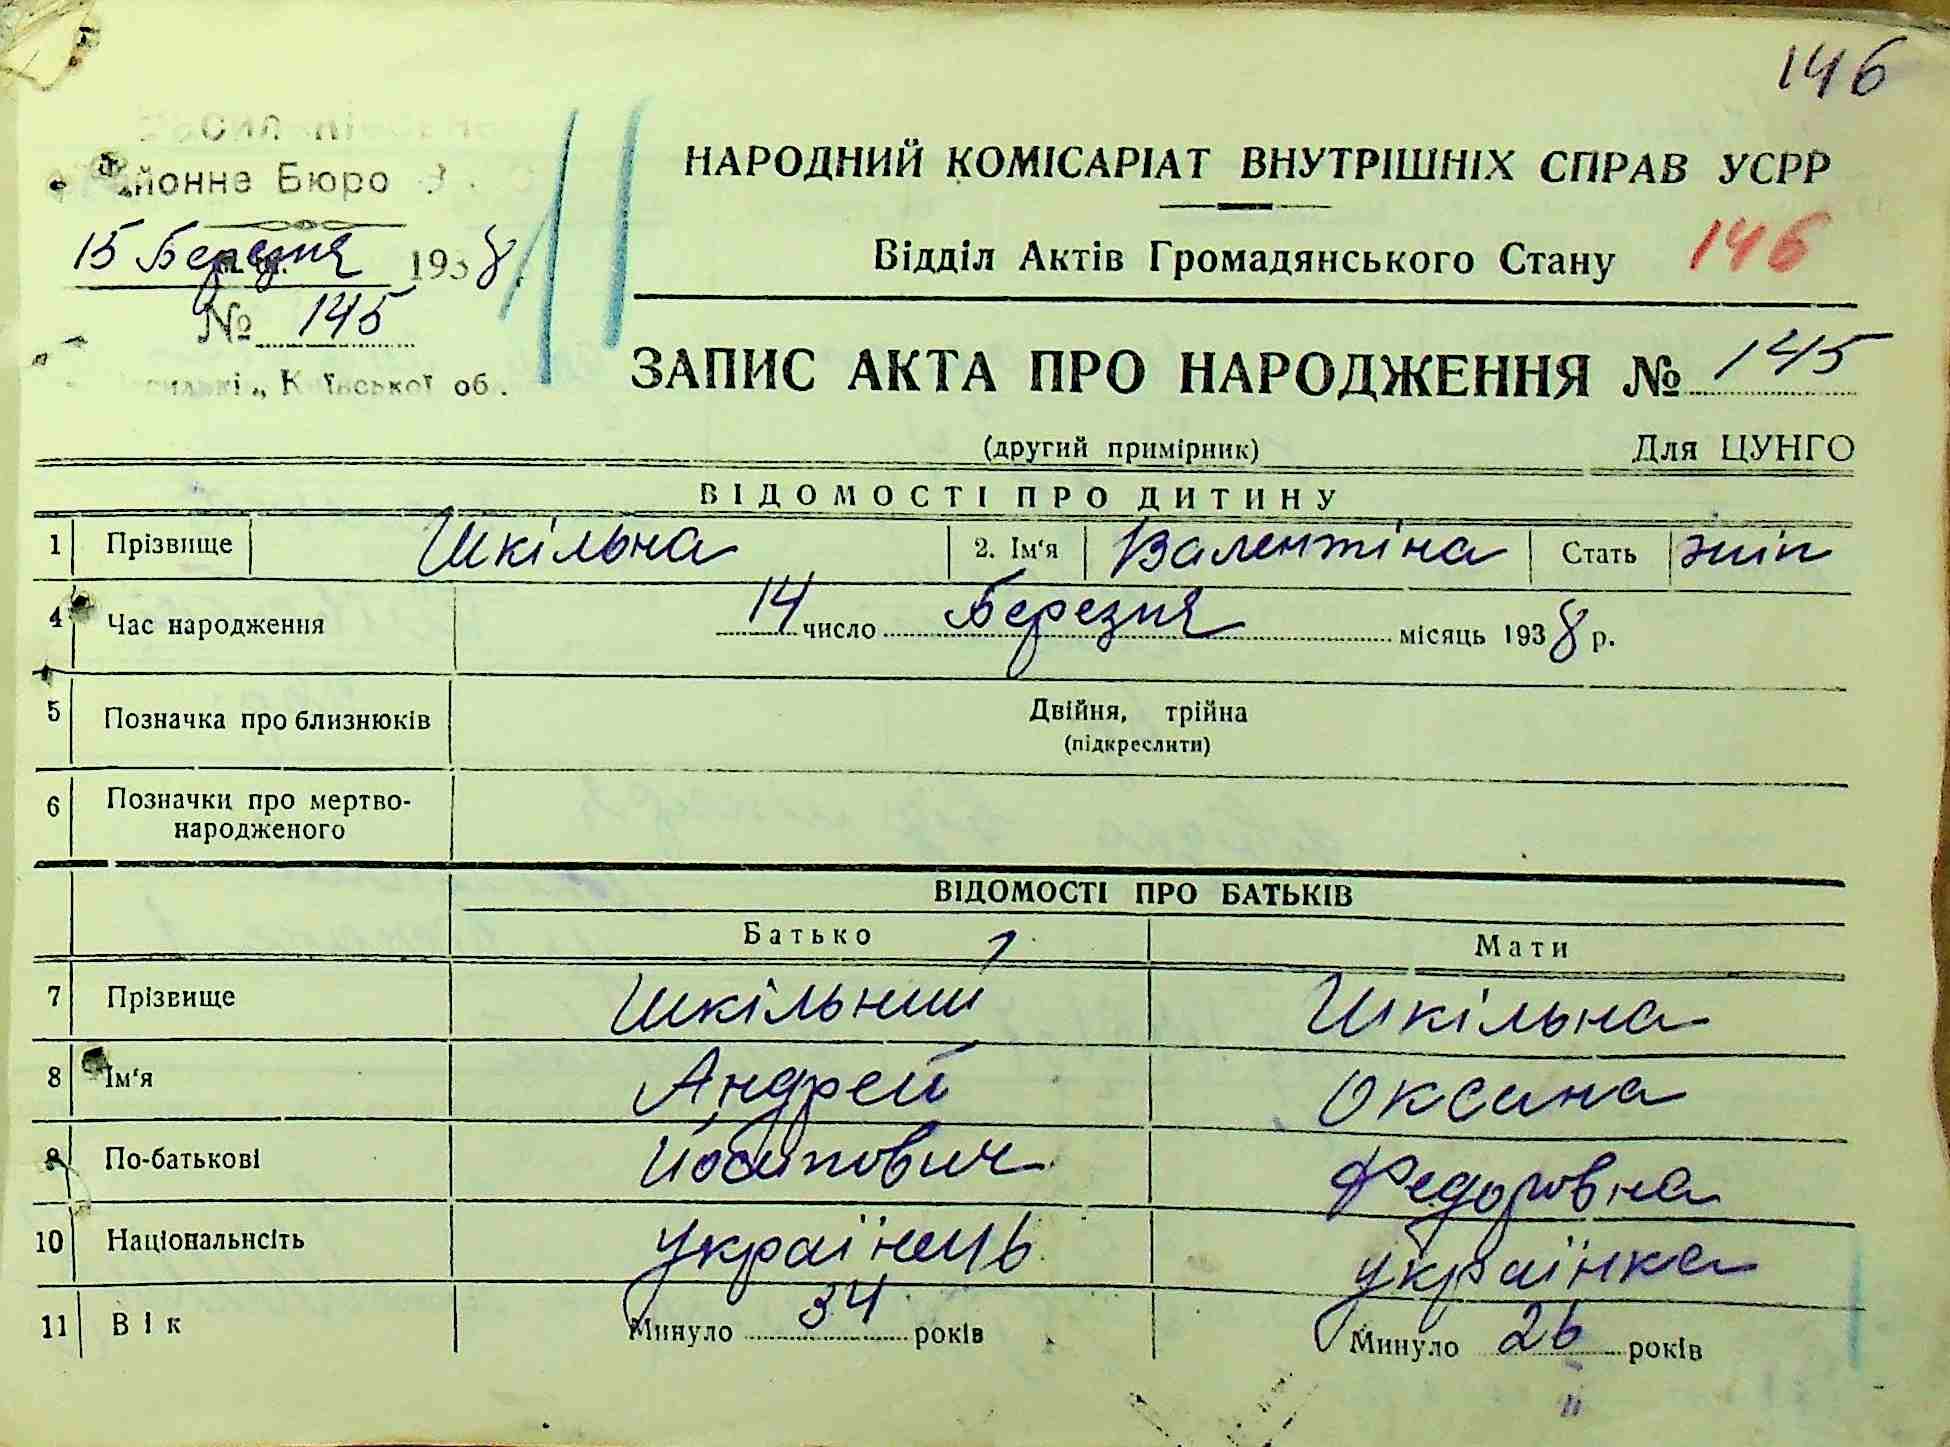 146
НАРОДНИЙ КОМІСАРІАТ ВНУТРІШНІХ СПРАВ УСРР
Бюро
15 Березня 1938
Відділ Актів Громадянського Стану 146
№ 145
Київської об.
ЗАПИС АКТА ПРО НАРОДЖЕННЯ № 145
(другий примірник) Для ЦУНГО
ВІДОМОСТІ ПРО ДИТИНУ
1 Прізвище Шкільна 2. Ім'я Валентіна Стать жін
4 Час народження 14 число Березня місяць 1938 р.
5 Позначка про близнюків Двійня, трійна
(підкреслити)
6 Позначки про мертво-
народженого
ВІДОМОСТІ ПРО БАТЬКІВ
Батько Мати
7 Прізвище Шкільний Шкільна
8 Ім'я Андрей Оксана
9 По-батькові Йосипович Федоровна
10 Національність українець українка
11 Вік Минуло 34 років Минуло 26 років